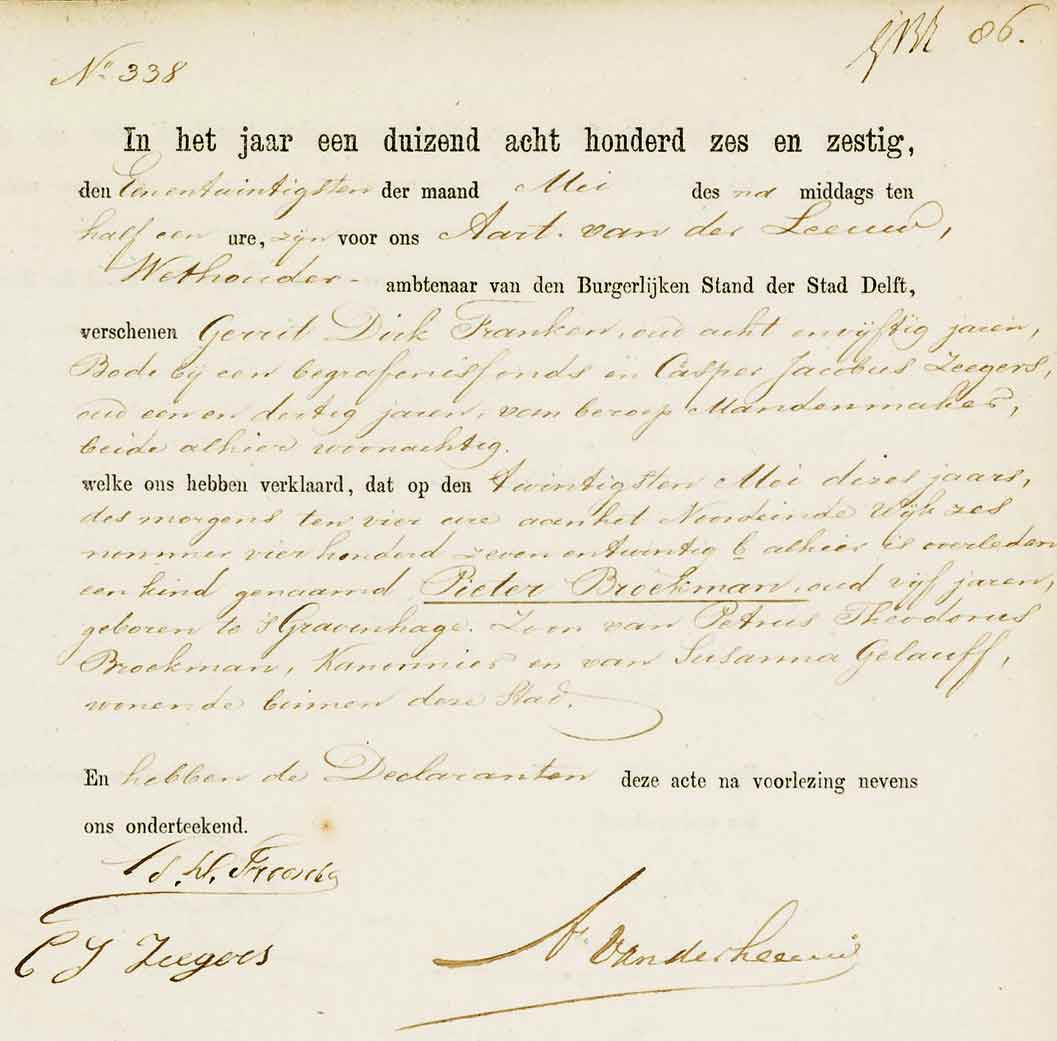 86.
No 338
In het jaar een duizend acht honderd zes en zestig,
den Eenentwintigsten der maand Mei des na middags ten
half een ure, zijn voor ons Aart van der Leeuw,
Wethouder - ambtenaar van den Burgerlijken Stand der Stad Delft,
verschenen Gerrit Dirk Franken, oud acht en vijftig jaren,
Bode bij een begrafenisfonds en Casper Jacobus Zeegers,
oud een en dertig jaren, van beroep Mandenmaker,
beide alhier woonachtig.
welke ons hebben verklaard, dat op den twintigsten Mei dezes jaars,
des morgens ten vier ure aan het Noordeinde Wijk zes
nommer vier honderd zeven entwintig b alhier is overleden
een kind genaamd Pieter Broekman, oud vijf jaren,
geboren te 's Gravenhage. Zoon van Petrus Theodorus
Broekman, Kanonnier en van Susanna Gelauff,
wonende binnen deze Stad.
En hebben de Declaranten deze acte na voorlezing nevens
ons onderteekend.
C J Zeegers
A. van der Leeuw